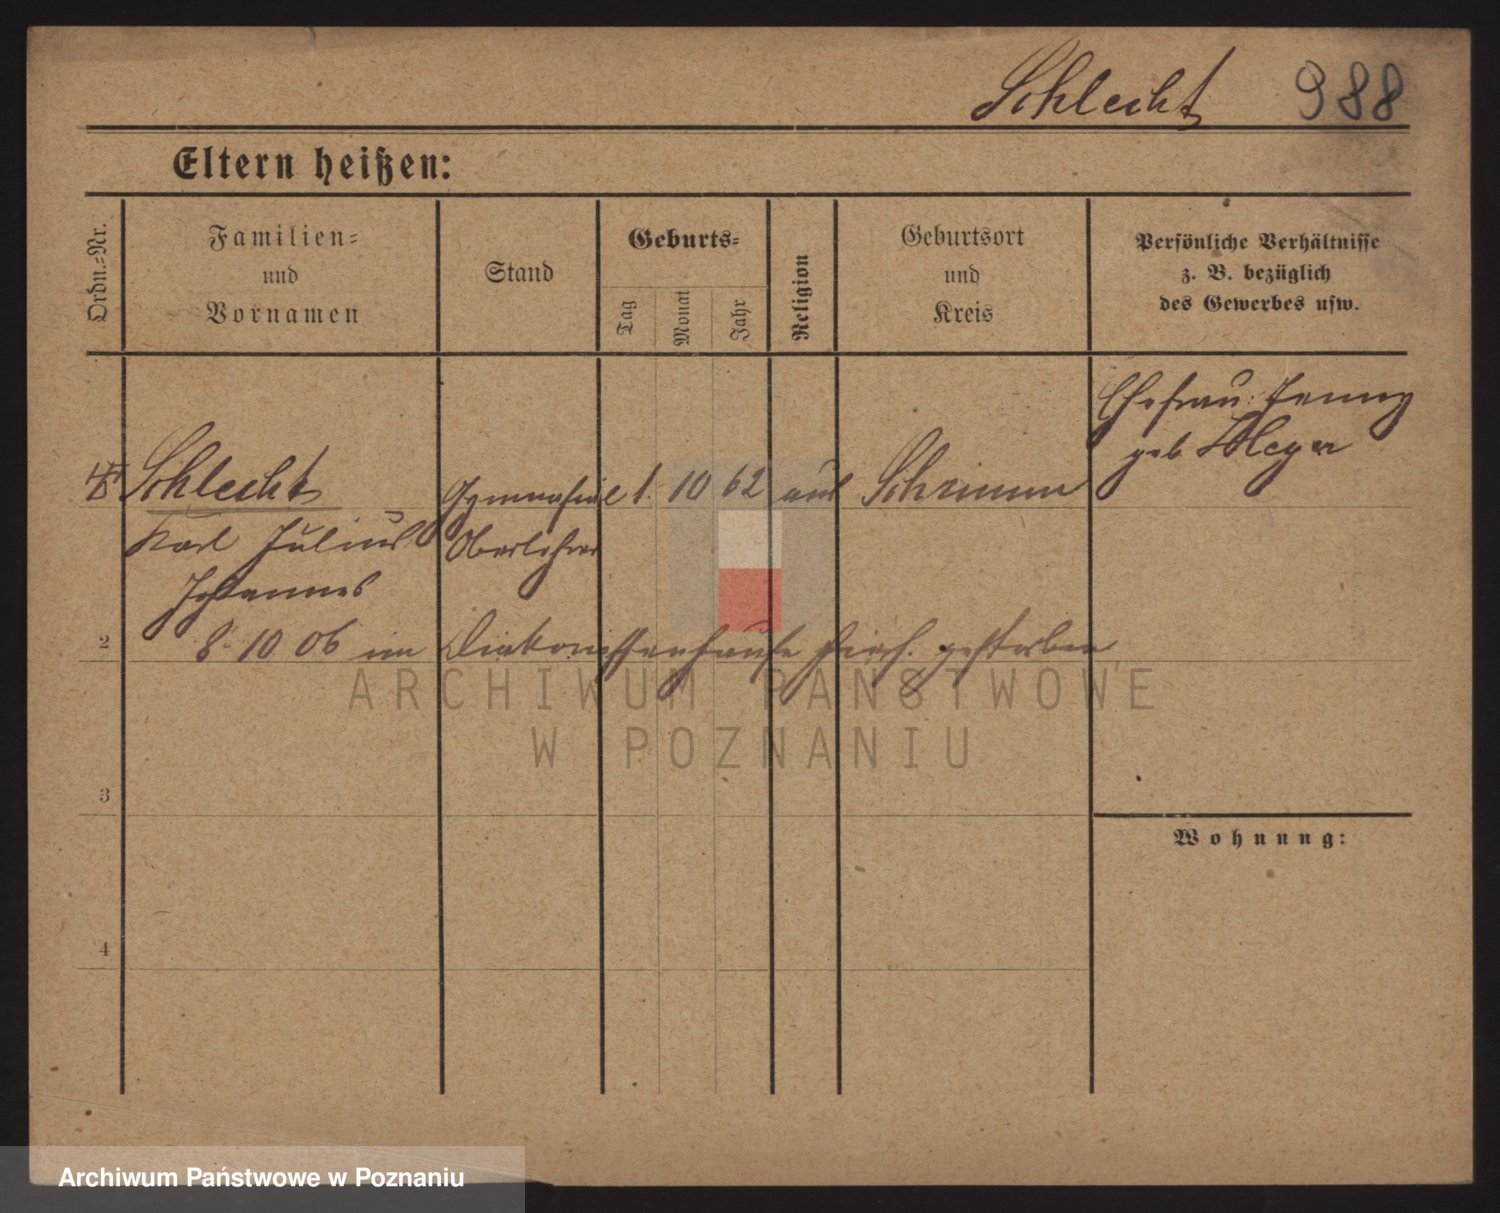 Schlecht 988
Eltern heißen:
Ordn.=Nr.
Familien=
und
Vornamen
Stand
Geburts=
Tag
Monat
Jahr
Religion
Geburtsort
und
Kreis
Persönliche Verhältnisse
z. B. bezüglich
des Gewerbes usw.
Ehefrau: Jenny
geb Meyer
Schlecht Gymnasial 1. 10 62 Schrimm
Karl Julius Oberlehrer
Johannes
2 8. 10 06 im Diakonissenhause gestorben
ARCHIWUM PAŃSTWOWE
W POZNANIU
3
Wohnung:
4
Archiwum Państwowe w Poznaniu